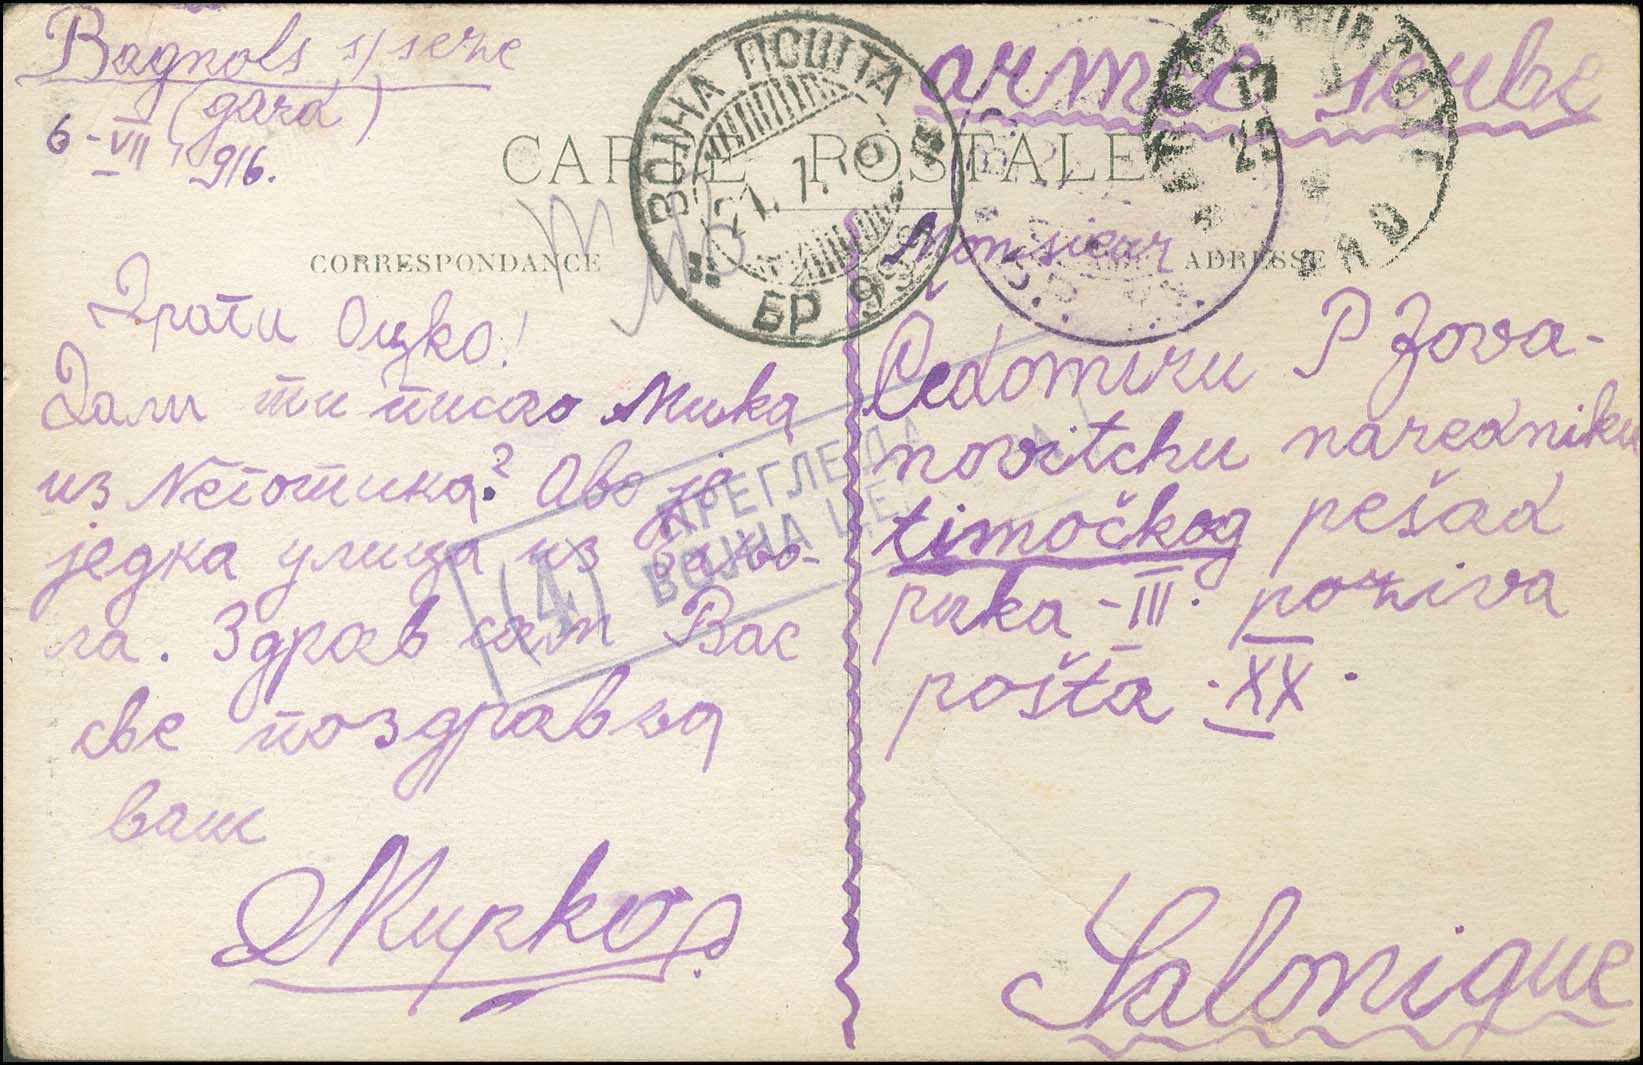 Bagnols s/ seze
(gard)
6-VII 916.
CARTE POSTALE
CORRESPONDANCE
Драги Оцко!
Дали ти писао Мика
из Неготина? Ово је
једна улица из Бањо-
ла. Здрав сам Вас
све поздравља
ваш
Мирко
ВОЈНА ПОШТА
БР 999
(4)
ПРЕГЛЕДА
ВОЈНА ЦЕ
armée serbe
ADRESSE
Monsieur
Čedomiru P Jova-
novitchu naredniku
timočkog pešad
puka - III. poziva
pošta . XX .
Salonique